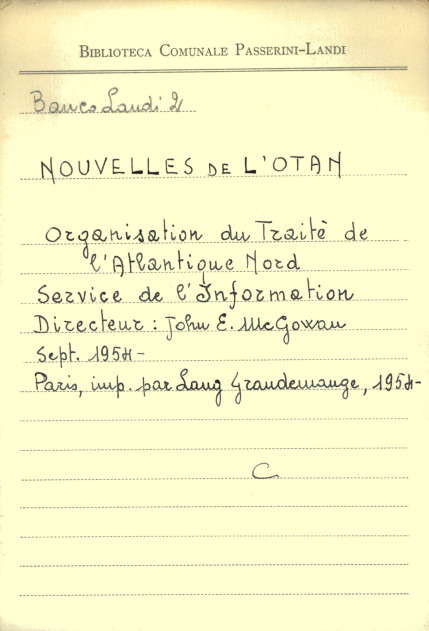 BIBLIOTECA COMUNALE PASSERINI-LANDI
Banco Landi 2
NOUVELLES DE L'OTAN
Organisation du Traité de
l'Atlantique Nord
Service de l'Information
Directeur : John E. McGowan
Sept. 1954-
Paris, imp. par Lang Grandemange, 1954-
C